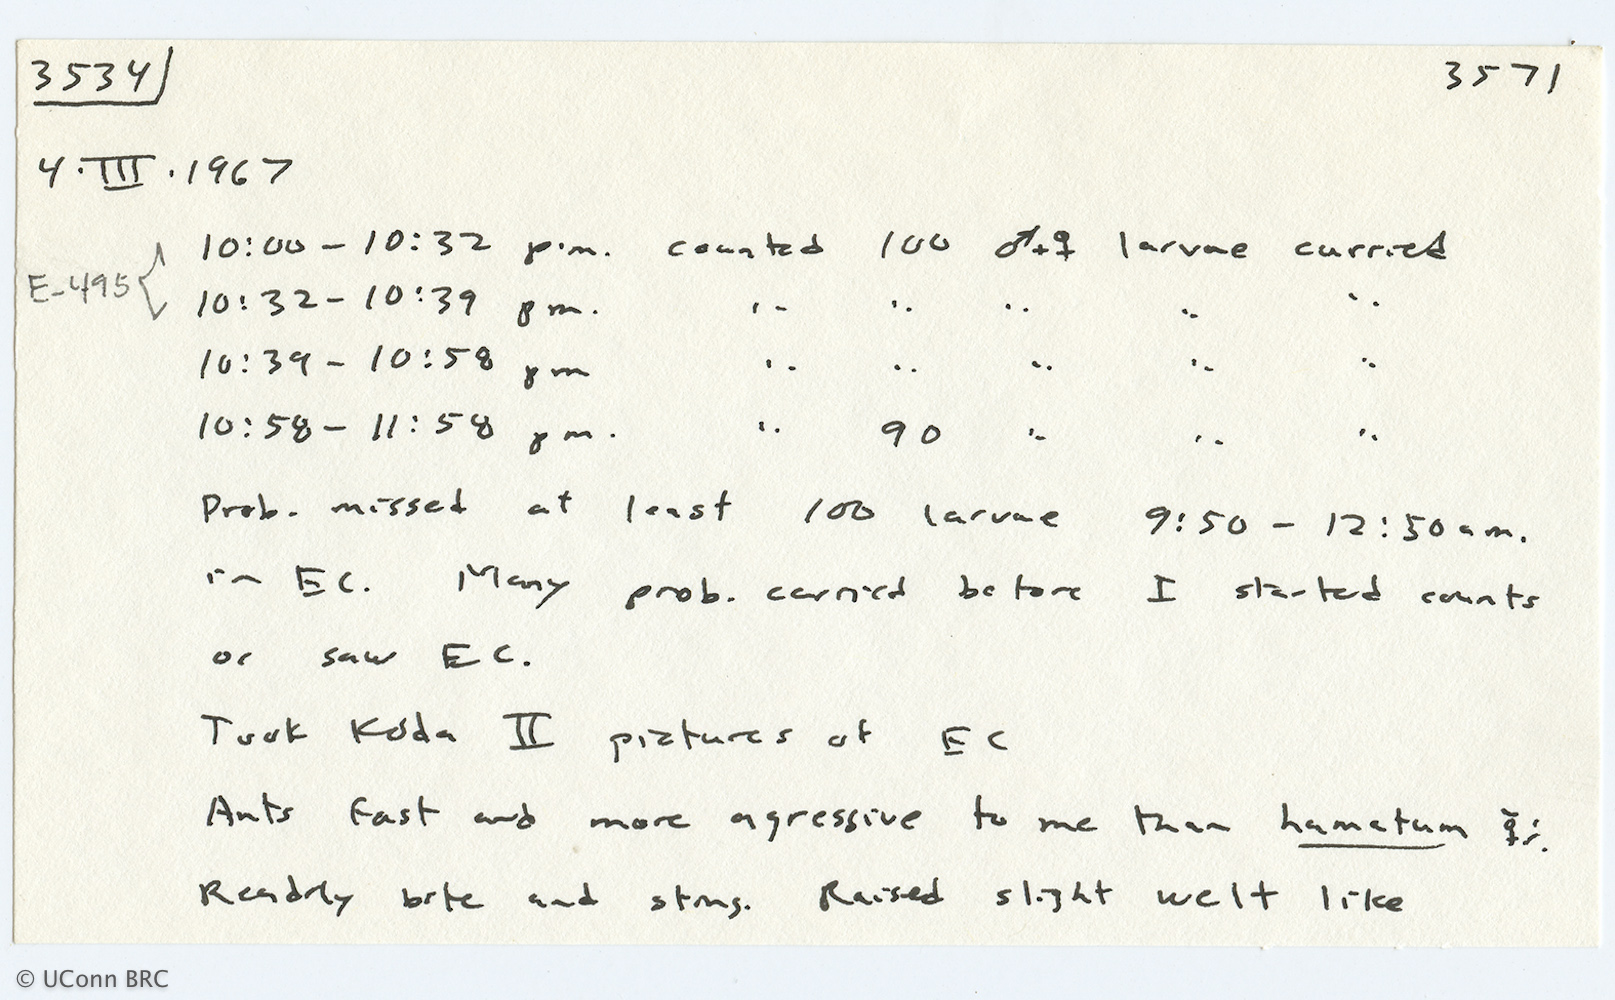 3534 3571
4·III·1967
10:00 – 10:32 p.m. counted 100 ♂+♀ larvae carried
E-495
10:32 – 10:39 pm. " " " " "
10:39 – 10:58 pm " " " " "
10:58 – 11:58 pm. " 90 " " "
Prob. missed at least 100 larvae 9:50 – 12:50 am.
in EC. Many prob. carried before I started counts
or saw EC.
Took Koda II pictures of EC
Ants fast and more agressive to me than hamatum
Readily bite and sting. Raised slight welt like
© UConn BRC